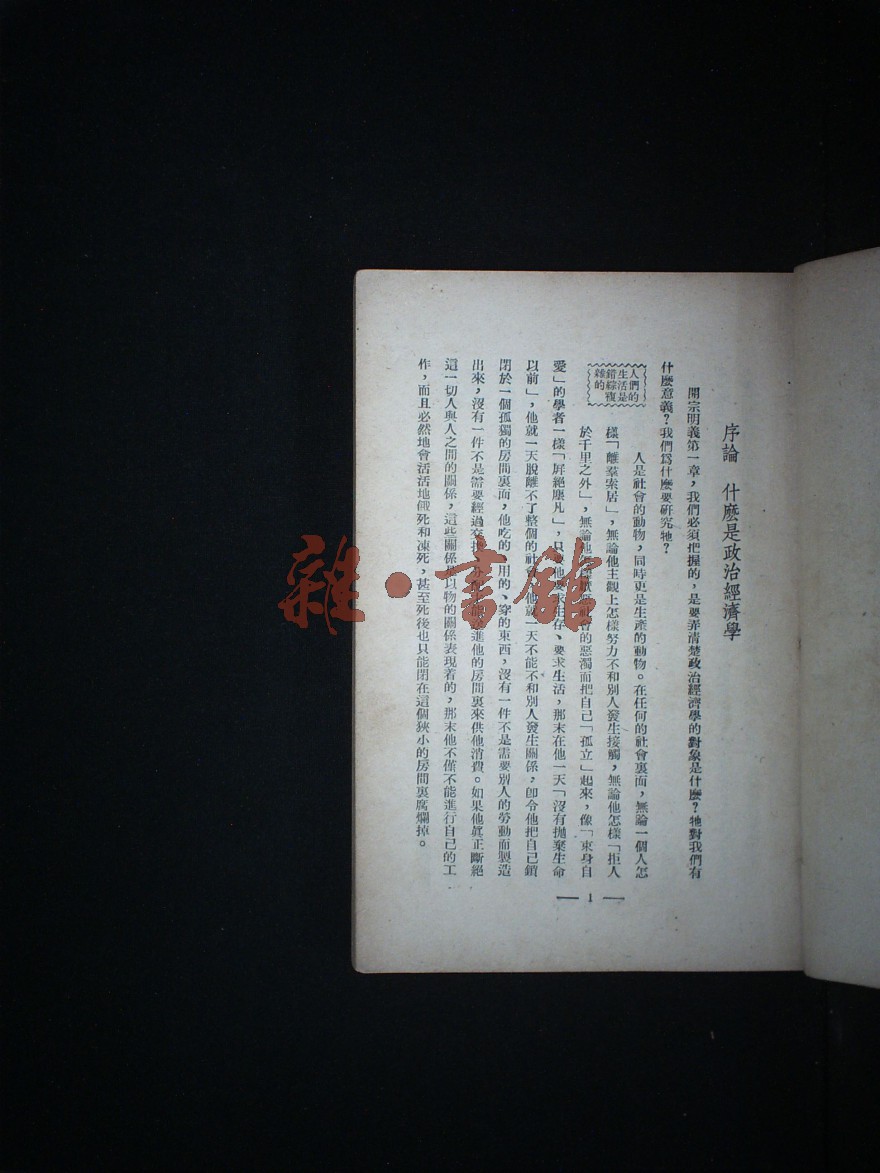 序論 什麼是政治經濟學
開宗明義第一章，我們必須把握的，是要弄清楚政治經濟學的對象是什麼？牠對我們有
什麼意義？我們爲什麼要研究牠？
人們的
生活是
錯綜複
雜的
人是社會的動物，同時更是生產的動物。在任何的社會裏面，無論一個人怎
樣「離羣索居」，無論他主觀上怎樣努力不和別人發生接觸，無論他怎樣「拒人
於千里之外」，無論他怎樣社會的惡濁而把自己「孤立」起來，像「束身自
愛」的學者一樣「屛絕塵凡」，只要他要求生存、要求生活，那末在他一天「沒有拋棄生命
以前」，他就一天脫離不了整個的社會，他就一天不能不和別人發生關係，卽令他把自己鎖
閉於一個孤獨的房間裏面，他吃的、用的、穿的東西，沒有一件不是需要別人的勞動而製造
出來，沒有一件不是需要經過交進他的房間裏來供他消費。如果他眞正斷絕
這一切人與人之間的關係，這些關係是以物的關係表現着的，那末他不僅不能進行自己的工
作，而且必然地會活活地餓死和凍死，甚至死後也只能閉在這個狹小的房間裏腐爛掉。
— 1 —
雜·書館